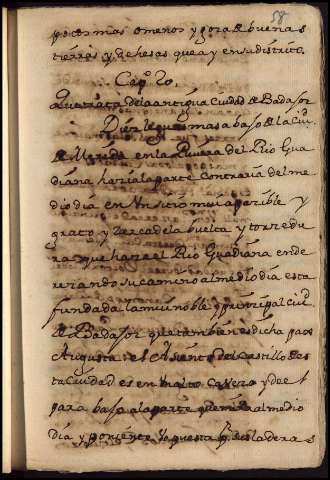 58
pocos mas omenos y goza de buenas
tierras y dehesas que ay en su distrito.
Cap.º 20.
Que trata de la antigua ciudad de Badajos
Diez leguas mas abaxo de la Ciud.
de Merida en la Rivera del Rio Gua
diana hazia la parte Contraria del me
dio dia en un sitio mui apazible y
grato y zerca de la buelta y torzedu
ra que haze el Rio Guadiana ende
rezando su camino al mediodia esta
fundada la mui noble y prinzipal ciud.
de Badajos que tambien es dicha pax
Augusta: el Asiento del Castillo de es
ta Ciudad es en un alto Cavezo y de el
para baxo a la parte que mira al medio
dia y poniente la puesta p.r sus laderas